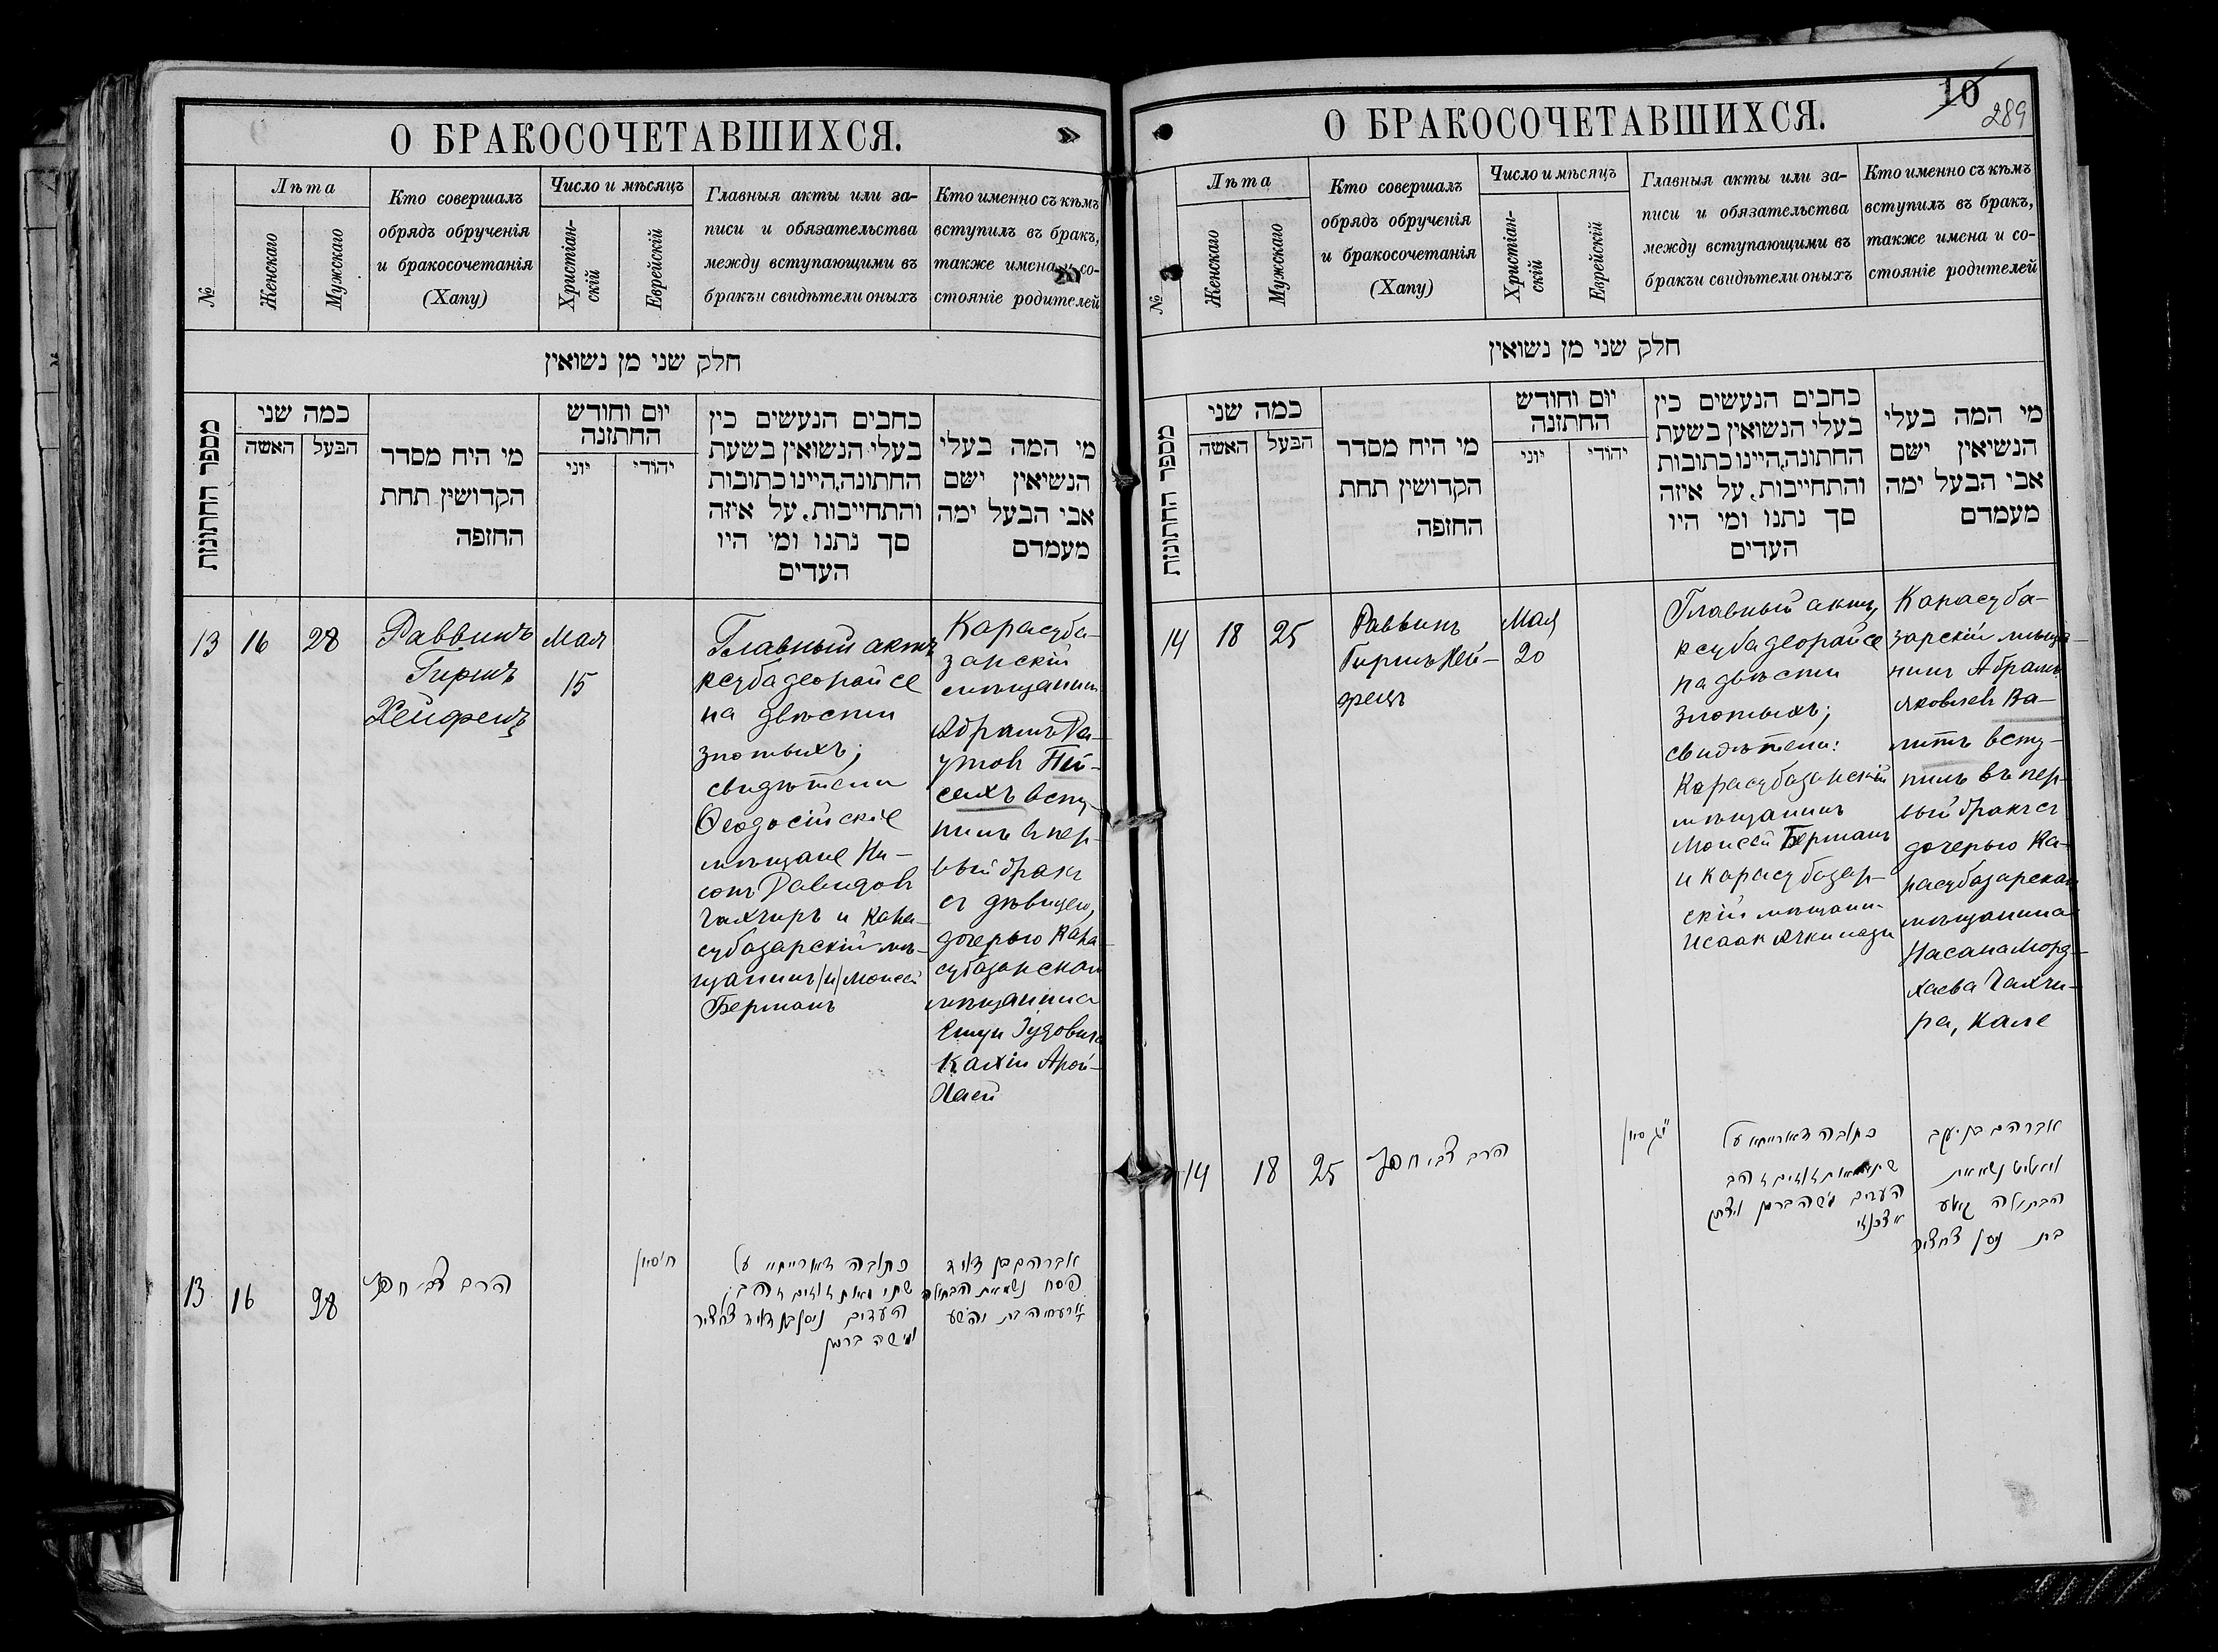 О БРАКОСОЧЕТАВШИХСЯ.
№
Лѣта
Женскаго
Мужскаго
Кто совершалъ
обрядъ обрученія
и бракосочетанія
(Хапу)
Число и мѣсяцъ
Христіан-
скій
Еврейскій
Главныя акты или за-
писи и обязательства
между вступающими въ
бракъи свидѣтели оныхъ
Кто именно съ кѣмъ
вступилъ въ бракъ,
также имена и со-
стояніе родителей
חלק שני מן נשואין
מספר החתונות
כמה שני
האשה
הבעל
מי היח מסדר
הקדושין תחת
החזפה
יום וחודש
החתזנה
יוני
יהודי
כחבים הנעשים כין
בעלי הנשואין בשעת
החתונה,היינו כתובות
והתחייבות, על איזה
סך נתנו ומי היו
העדים
מי המה בעלי
הנשיאין ישם
אבי הבעל ימה
מעמדם
13
16
28
Раввинъ
Гиршъ
Хейфецъ
Мая
15
Главный актъ
ксуба деорайсе
на двѣсти
злотыхъ;
свидѣтели
Ѳеодосійскіе
мѣщане Ни-
сонъ Давидовъ
Чахчиръ и Кара-
субазарскій мѣ-
щанинъ /и/ Моисей
Берманъ
Карасуба-
зарскій
мѣщанинъ
Абрамъ Да-
Пей-
сахъ всту-
пилъ в пер-
вый бракъ
съ дѣвицею,
дочерью Кара-
субазарскаго
мѣщанина
13
16
28
הרב צבי חפץ
ח' סיון
כתובה דאורייתא על
שתי מאות זוזים זהב:
העדים ניסן בן דוד צחציר
ומשה ברמן
אברהם בן דוד
פיסח נשא את הבתולה
בת יהושע
О БРАКОСОЧЕТАВШИХСЯ.
10
289
№
Лѣта
Женскаго
Мужскаго
Кто совершалъ
обрядъ обрученія
и бракосочетанія
(Хапу)
Число и мѣсяцъ
Христіан-
скій
Еврейскій
Главныя акты или за-
писи и обязательства
между вступающими въ
бракъи свидѣтели оныхъ
Кто именно съ кѣмъ
вступилъ въ бракъ,
также имена и со-
стояніе родителей
חלק שני מן נשואין
מספר החתונות
כמה שני
האשה
הבעל
מי היח מסדר
הקדושין תחת
החזפה
יום וחודש
החתזנה
יוני
יהודי
כחבים הנעשים כין
בעלי הנשואין בשעת
החתונה,היינו כתובות
והתחייבות, על איזה
סך נתנו ומי היו
העדים
מי המה בעלי
הנשיאין ישם
אבי הבעל ימה
מעמדם
14
18
25
Раввинъ
Гиршъ Хей-
фецъ
Мая
20
Главный актъ,
ксуба деорайсе
на двѣсти
злотыхъ;
свидѣтели:
Карасубазарскій
мѣщанинъ
Моисей Берманъ
и Карасубазар-
скій мѣщанинъ
Исаак Ачкинази
Карасуба-
зарскій мѣща-
нинъ Абрамъ
Яковлевъ Ва-
литъ всту-
пилъ въ пер-
вый бракъ съ
дочерью Ка-
расубазарскаго
мѣщанина
Насана Морд-
хаева Чахчи-
ра, Кале
14
18
25
הרב צבי חפץ
י"ג סיון
כתובה דאורייתא על
שתי מאות זוזים זהב
העדים משה ברמן ויצחק
אברהם בן יעקב
וואליט נשא את
הבתולה
בת ניסן צחציר